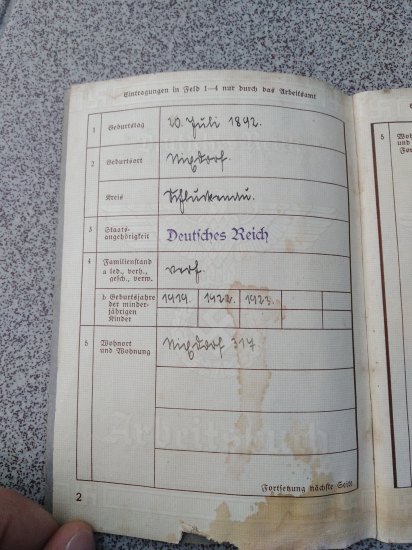 Eintragungen in Feld 1—4 nur durch das Arbeitsamt
1 Geburtstag 20. Juli 1892.
2 Geburtsort Nixdorf.
Kreis Schluckenau.
3 Staats-
angehörigkeit Deutsches Reich
4 Familienstand
a led., verh.,
gesch., verw. verh.
b Geburtsjahre
der minder-
jährigen
Kinder 1919. 1922. 1923.
5 Wohnort
und Wohnung Nixdorf 317
Arbeitsbuch
Fortsetzung nächste Seite
2
5